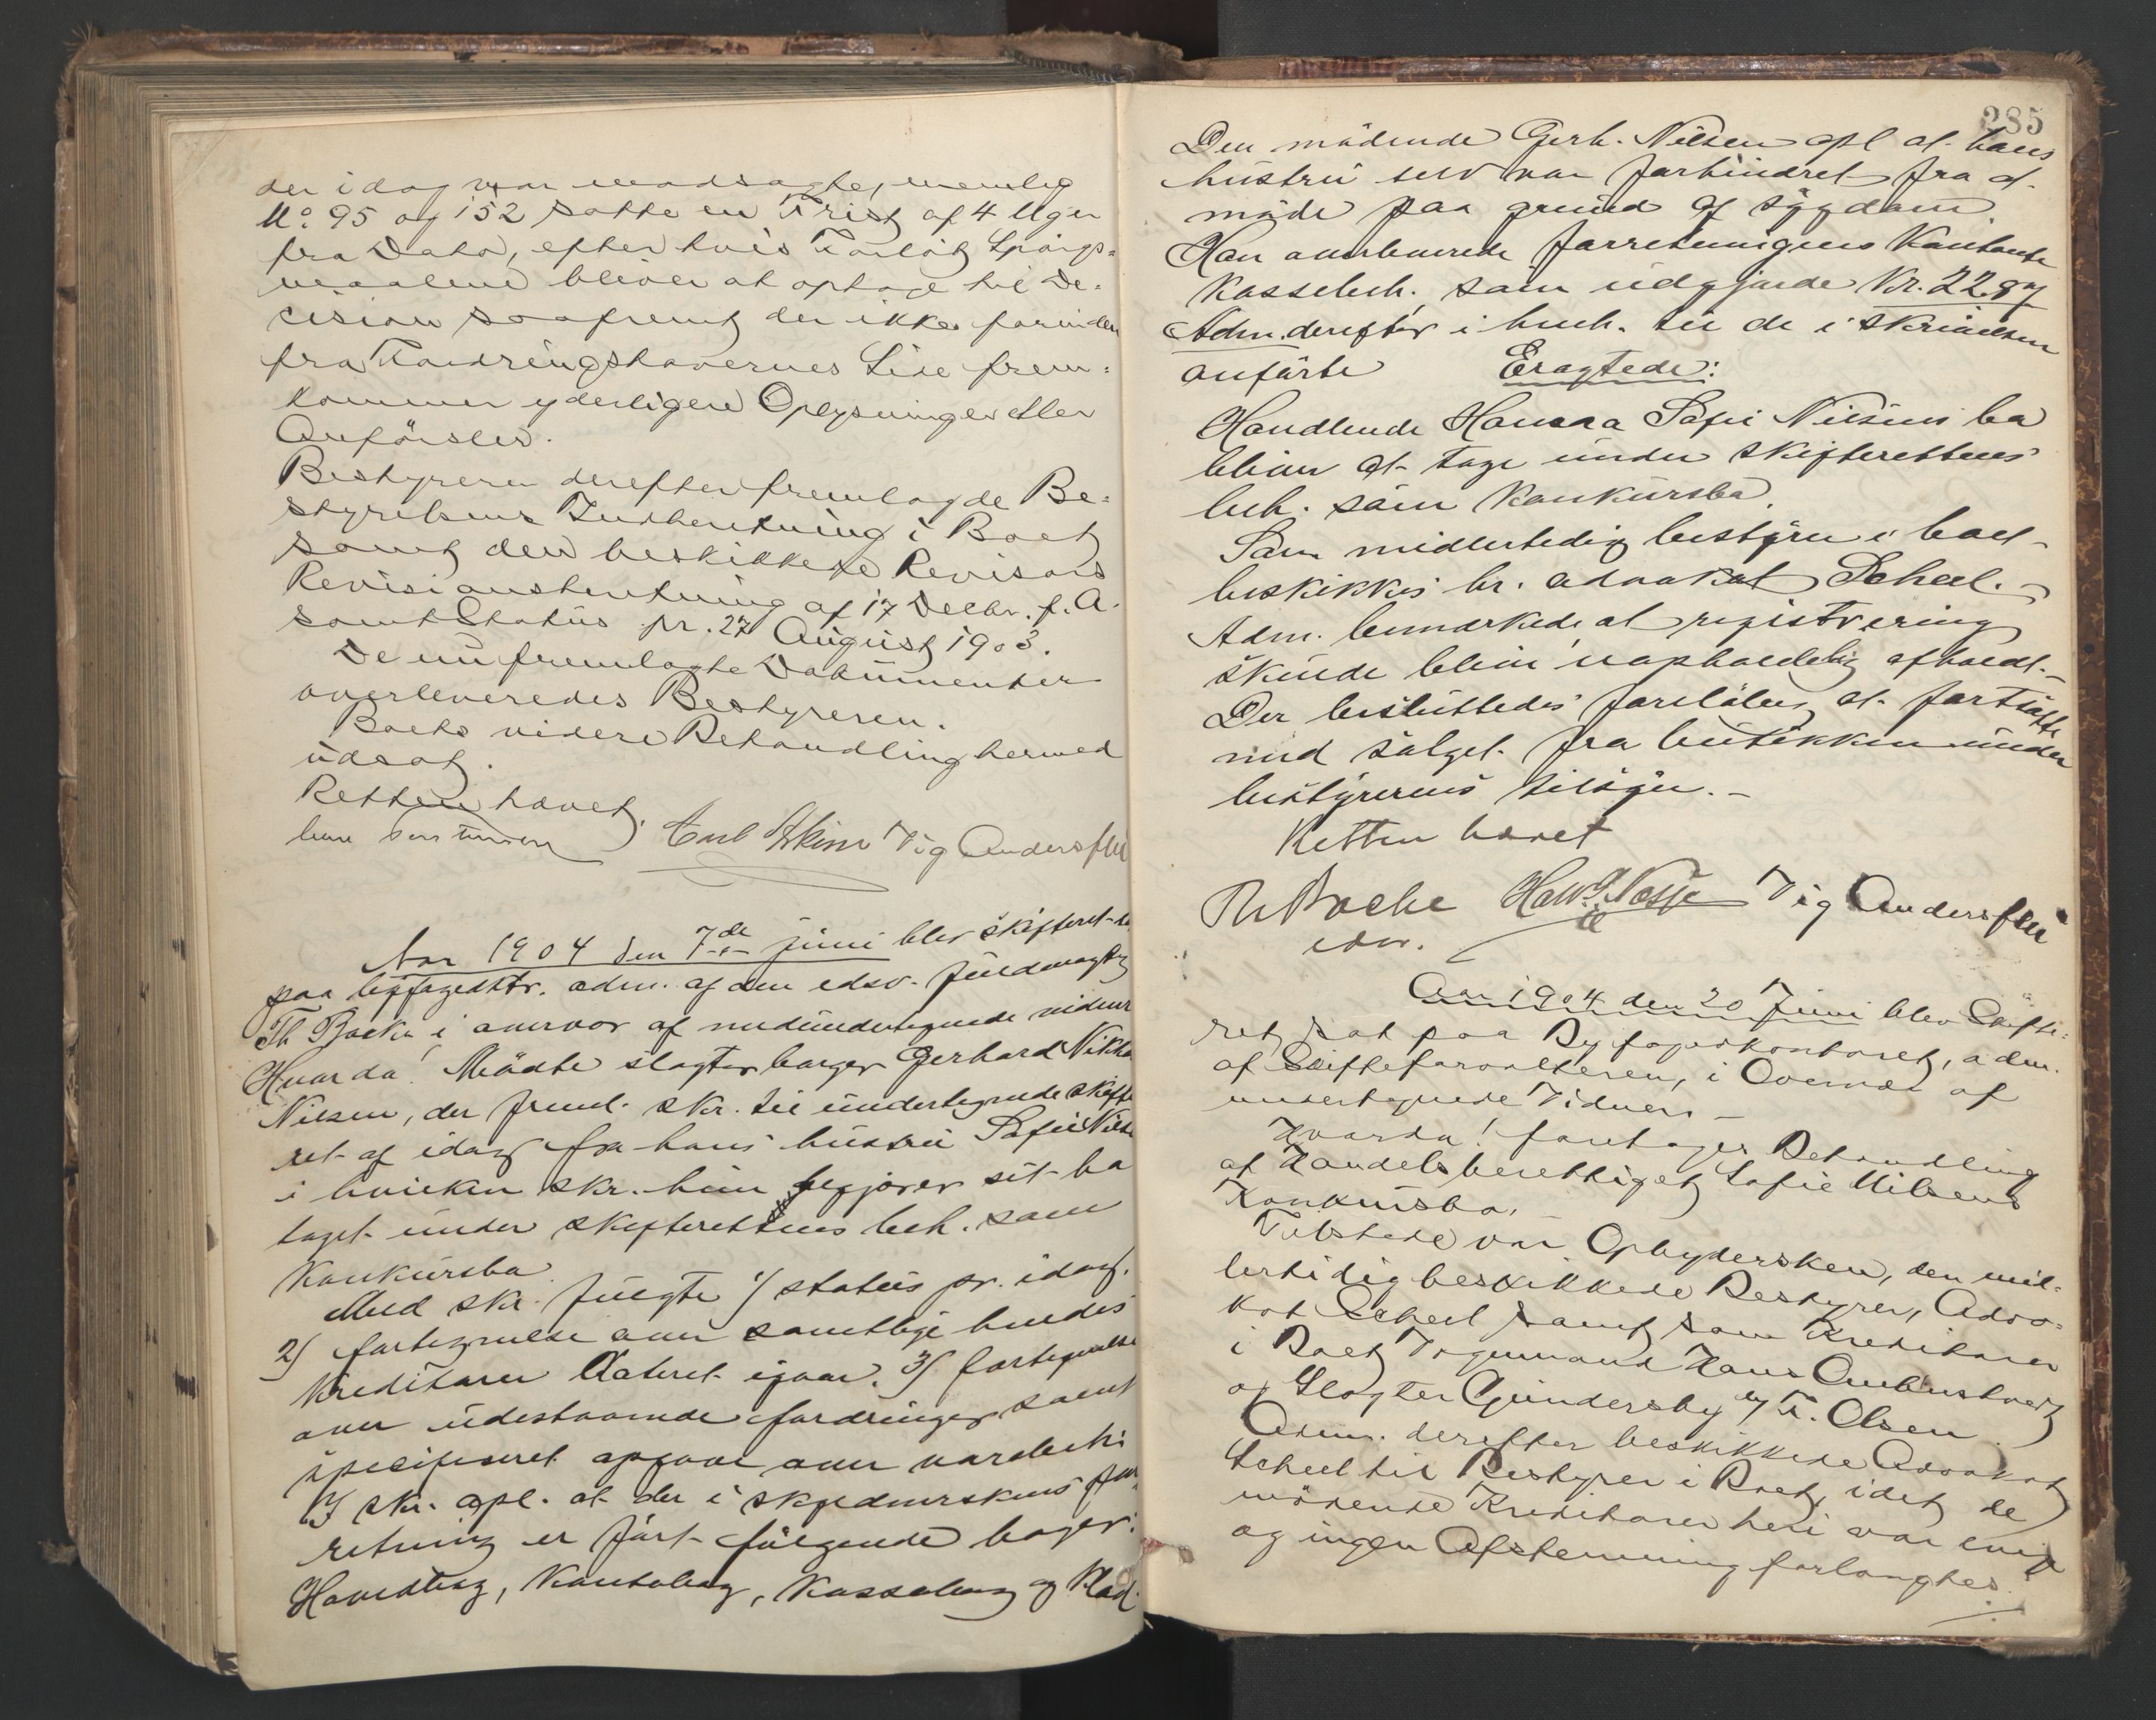 der idag var modsagte, nemlig
No 95 og 152 satte en Frist af 4 Uger
fra Dato, efter hvis Forløb Spørgs=
maalene bliver at optage til De=
cision saafremt der ikke forinden
fra Fordringshavernes Side frem=
kommer yderligere Oplysninger eller
Anførsler.
Bestyreren derefter fremlagde Be=
styrelsens Indberetning i Boet
samt den beskikkede Revisors
Revisionsberetning af 17 Decbr. f. A.
samt Status pr. 27 August 1903.
De nu fremlagte Dokumenter
overleveredes Bestyreren.
Boets videre Behandling hermed
udsat.
Retten hævet.
Vig Andersen
Aar 1904 den 7de juni blev skifteret
paa byfogedktr. adm. af den edsv. fuldmægtig
Th Backe i overvær af medundertegnede vidner
Hvorda! Mødte slagterborger Gerhard
Nilsen, der freml. skr. til undertegnede skifte
ret af idag fra hans hustru Sofie Nilsen
i hvilken skr. hun begjærer sit bo
taget under skifterettens beh. som
Konkursbo.
Med skr. fulgte 1/ status pr. idag.
2/ fortegnelse over samtlige hendes
Kreditorer dateret igaar. 3/ fortegnelse
over udestaaende fordringer samt
specificeret opgave over varebeh.
I skr. opl. at der i skyldnerskens for
retning er ført følgende bøger:
Hovedbog, Kontobog, Kassabog og Klad
285
Den mødende Gerh. Nilsen opl at hans
hustru selv var forhindret fra at
møde paa grund af sygdom.
Han overleverede forretningens Kontante
Kassebeh. som udgjorde Kr. 22.87
Adm. derefter i henh. til de i skrivelsen
anførte Eragtede:
Handlende Hanna Sofie Nilsens bo
bliver at tage under skifterettens
beh. som Konkursbo.
Som midlertidig bestyrer i boet
beskikkes hr. advokat Scheel.
Adm. bemærkede at registrering
skulde blive uopholdelig afholdt.
Der besluttedes foreløbig at fortsætte
med salget fra butikken under
bestyrerens tilsyn.
Retten hævet
Th Backe Vig Andersen
edsv.
Aar 1904 den 20 Juni blev Skifte=
ret sat paa Byfogedkontoret, adm.
af Skifteforvalteren, i Overvær af
undertegnede Vidner
Hvorda! foretages Behandling
af Handelsberettiget Sofie Nilsens
Konkursbo.
Tilstede var Opbydersken, den mid=
lertidig beskikkede Bestyrer, Advo=
kat Scheel samt som Kreditorer
i Boet Vognmand Hans
og Slagter Gundersby og F. Olsen.
Adm. derefter beskikkede Advokat
Scheel til Bestyrer i Boet, idet de
mødende Kreditorer heri var enige
og ingen Afstemning forlangtes.